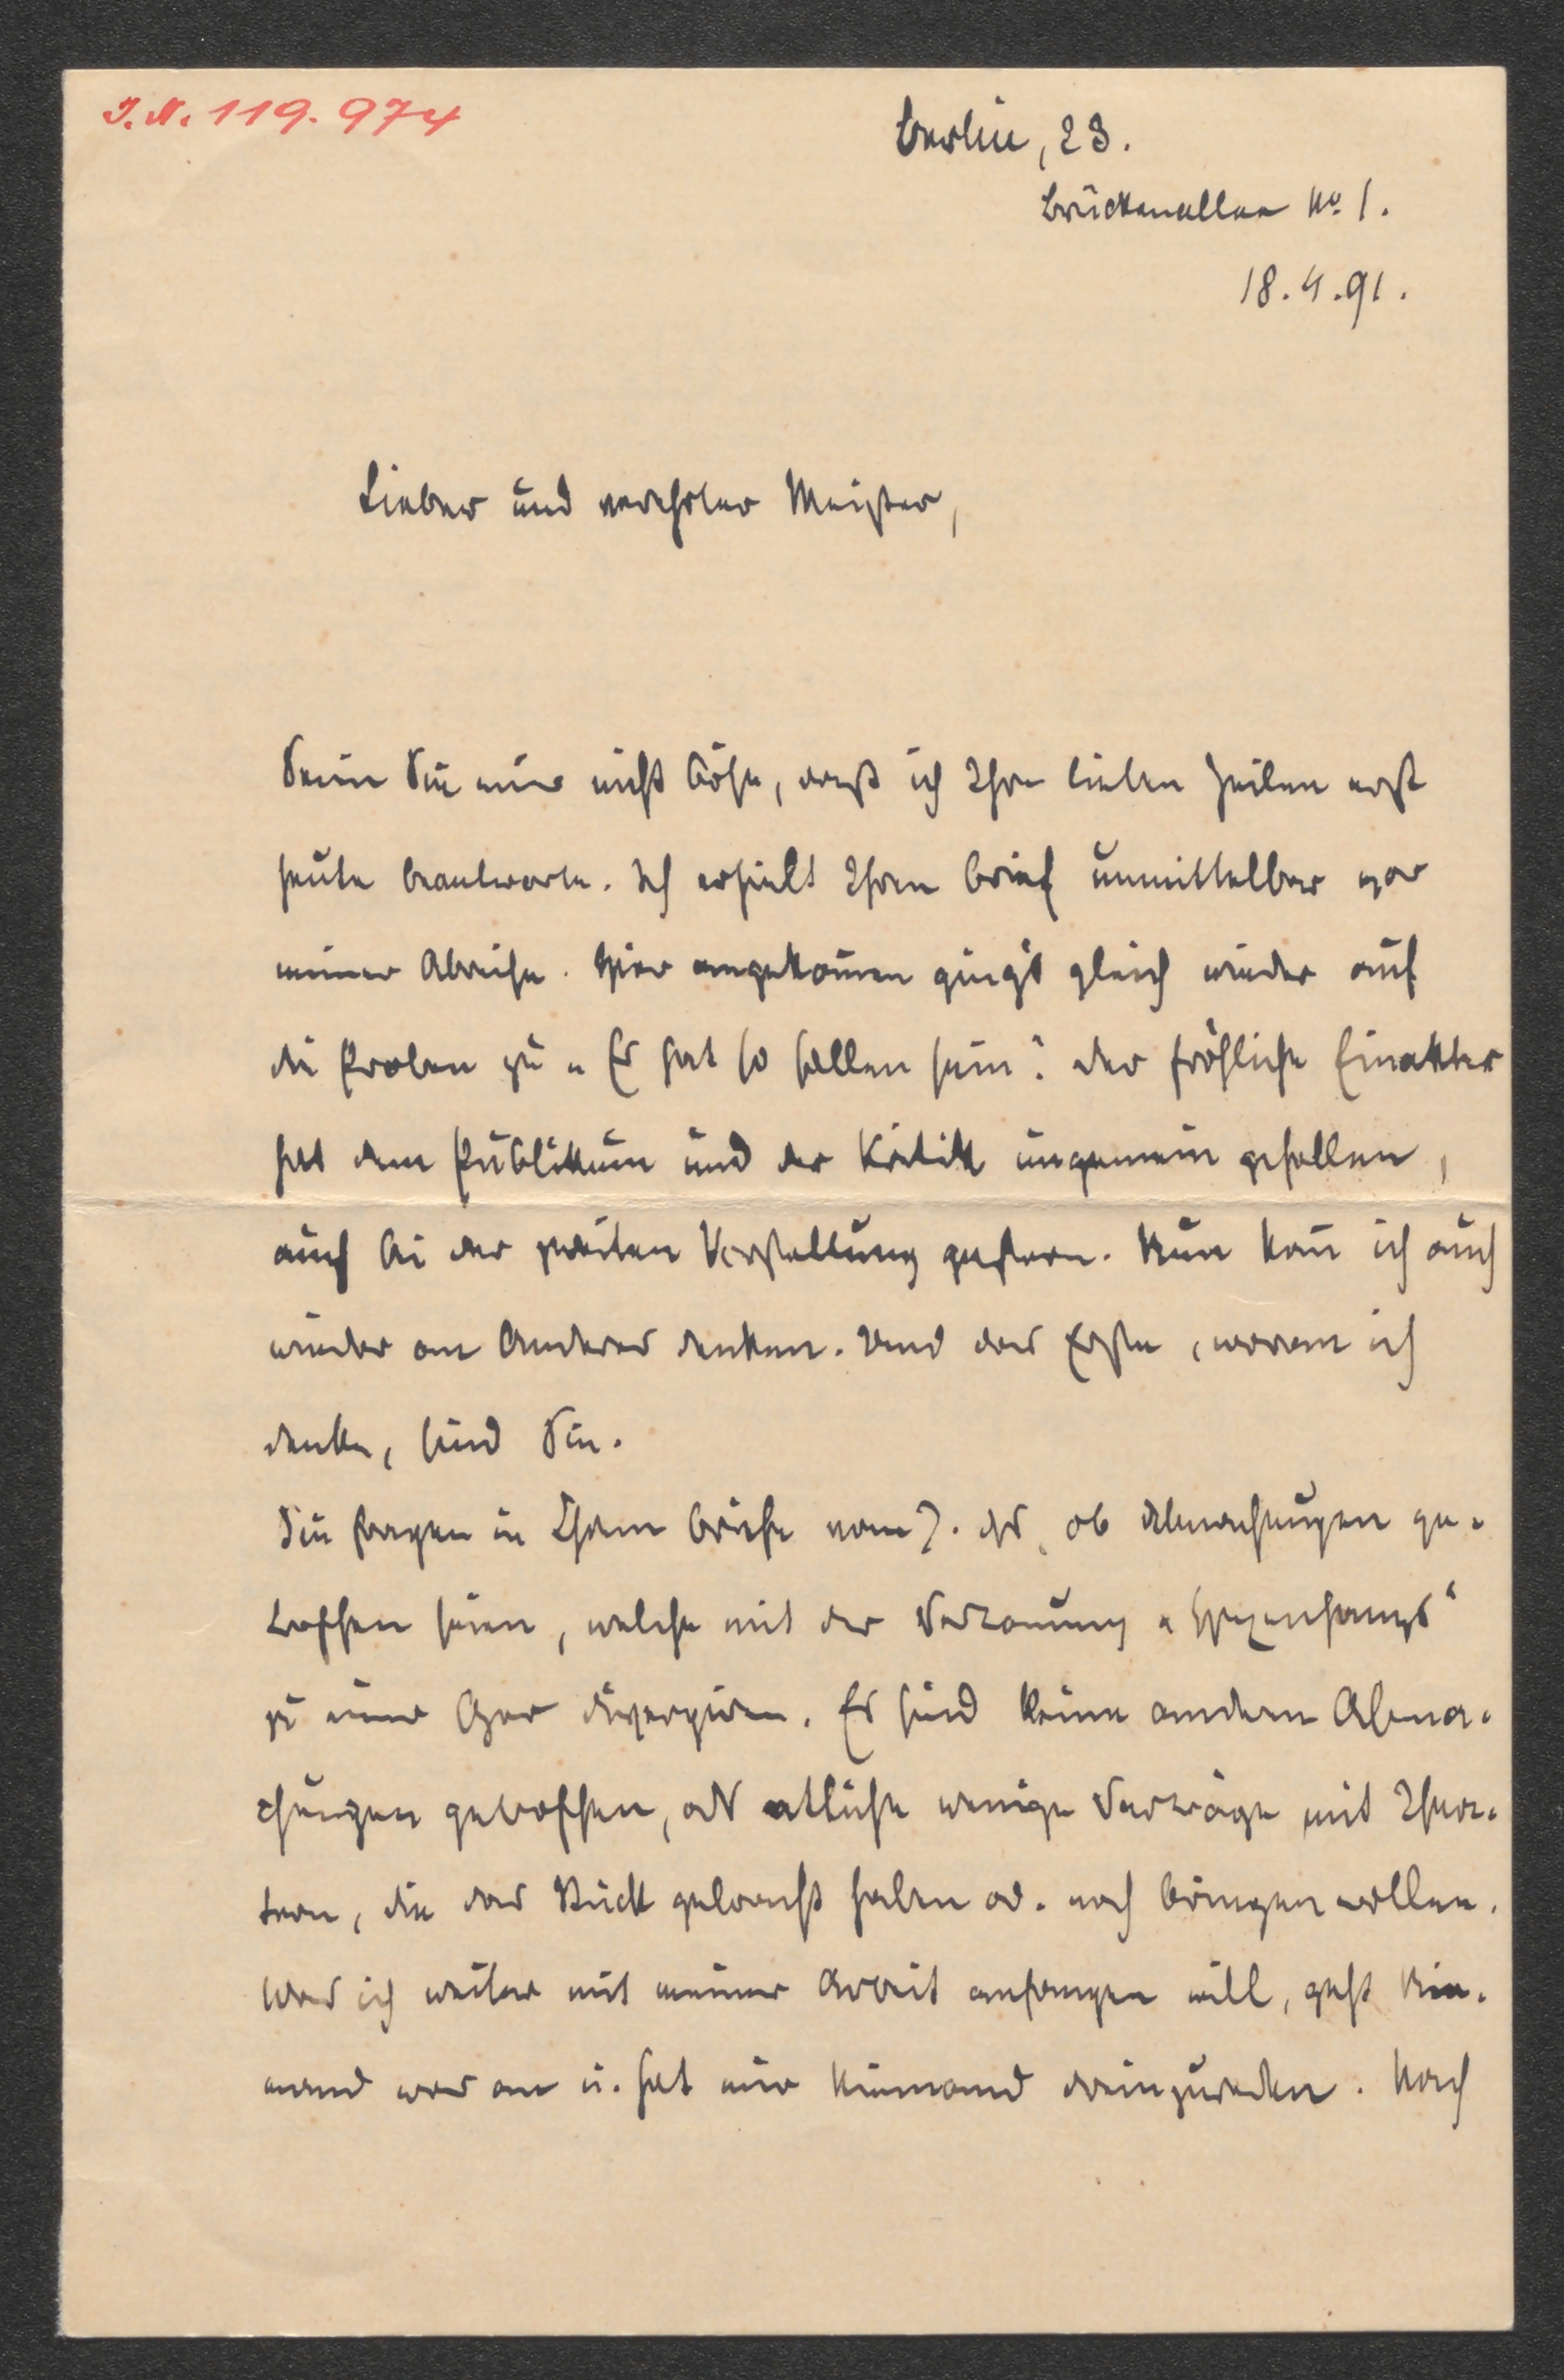 I.N. 119.974
Berlin, 23.
Brückenallee No. 1.
18.4.91.
Lieber und verehrter Meister,
Seien Sie mir nicht böse, daß ich Ihre lieben Zeilen erst
heute beantworte. Ich erhielt Ihren Brief unmittelbar vor
meiner Abreise. Hier angekommen ging's gleich wieder auf
die Proben zu „Es hat so sollen sein“. Der fröhliche Einakter
hat dem Publikum und der Kritik ungemein gefallen,
auch bei der zweiten Vorstellung gestern. Nun kann ich auch
wieder an Anderes denken. Und das Erste, woran ich
denke, sind Sie.
Sie fragen in Ihrem Briefe vom 7. ds, ob Abmachungen ge-
troffen seien, welche mit der Vertonung „Hexenfangs“
zu einer Oper divergiren. Es sind keine andern Abma-
chungen getroffen, als etliche wenige Verträge mit Thea-
tern, die das Stück gebracht haben od. noch bringen wollen.
Was ich weiter mit meiner Arbeit anfangen will, geht Nie-
mand was an u. hat mir Niemand dreinzureden. Nach